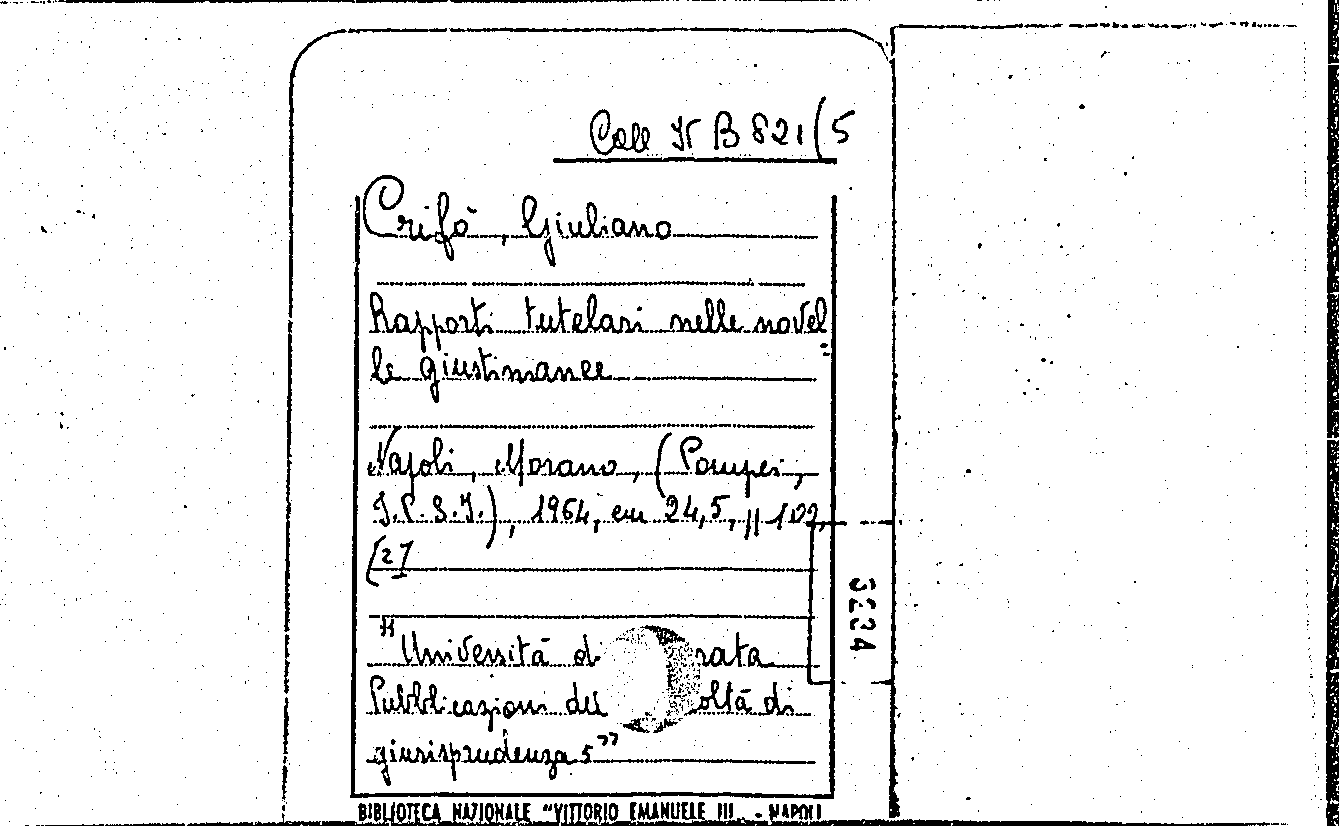 Coll H B 821/5
Crifò, Giuliano
Rapporti tutelari nelle novel
le giustinianee
Napoli, Morano, (Pompei,
I.P.S.I.), 1964, cm 24,5, pp 102,
[2]
"Università di rata
Pubblicazioni del oltà di
giurisprudenza 5"
3234
BIBLIOTECA NAZIONALE "VITTORIO EMANUELE III" - NAPOLI